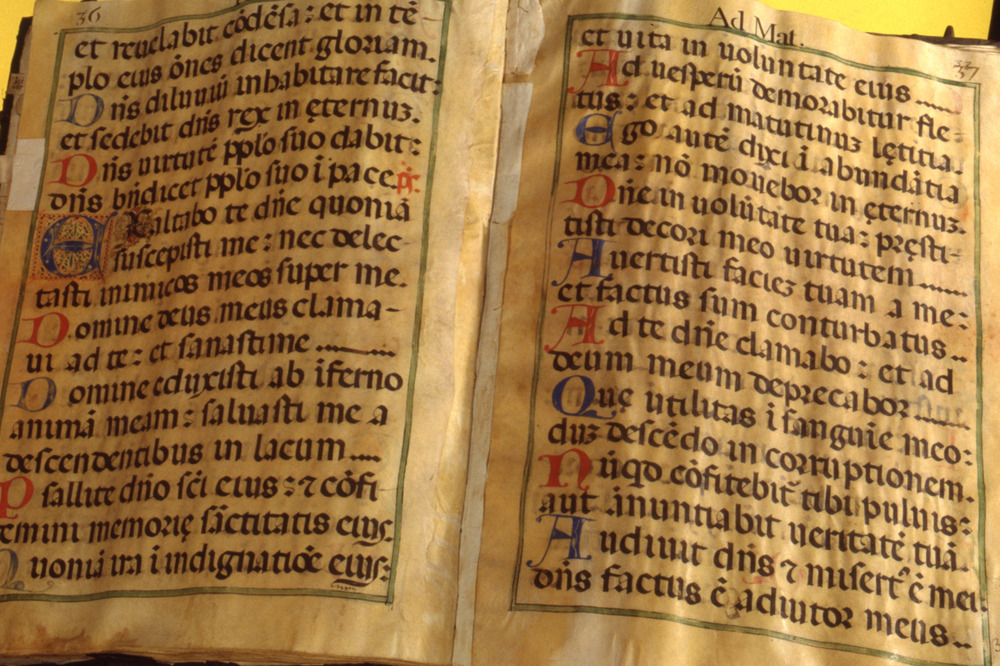 36
et reuelabit cōdēsa: et in tē-
plo eius ōnes dicent gloriam.
Dn̄s diluuiū inhabitare facit:
et sedebit dn̄s rex in ęternuꝫ.
Dn̄s uirtutē pplo suo dabit:
dn̄s bn̄dicet pplo suo ī pace. p̄s.
Exaltabo te dn̄e quoniā
suscepisti me: nec delec-
tasti inimicos meos super me.
Domine deus meus clama-
ui ad te: et sanasti me
Domine eduxisti ab īferno
animā meam: saluasti me a
descendentibus in lacum
Psallite dn̄o sc̄i eius: ⁊ cōfi-
temini memorię sāctitatis eius.
Quoniā ira ī indignatiōe eius:
Ad Mat.
37
et uita in uoluntate eius
Ad uesperū demorabitur fle-
tus: et ad matutinuꝫ lętitia.
Ego autē dixi ī abundātia
mea: nō mouebor in ęternuꝫ.
Dn̄e in uolūtate tua: pręsti-
tisti decori meo uirtutem
Auertisti facieꝫ tuam a me:
et factus sum conturbatus..
Ad te dn̄e clamabo: et ad
deum meum deprecabor
Quę utilitas ī sanguīe meo:
duꝫ descēdo in corruptionem.
Nūqd cōfitebit̄ tibi puluis:
aut ānuntiabit ueritatē tuā.
Audiuit dn̄s ⁊ misert᾽ ē mei:
dn̄s factus ē adiutor meus..